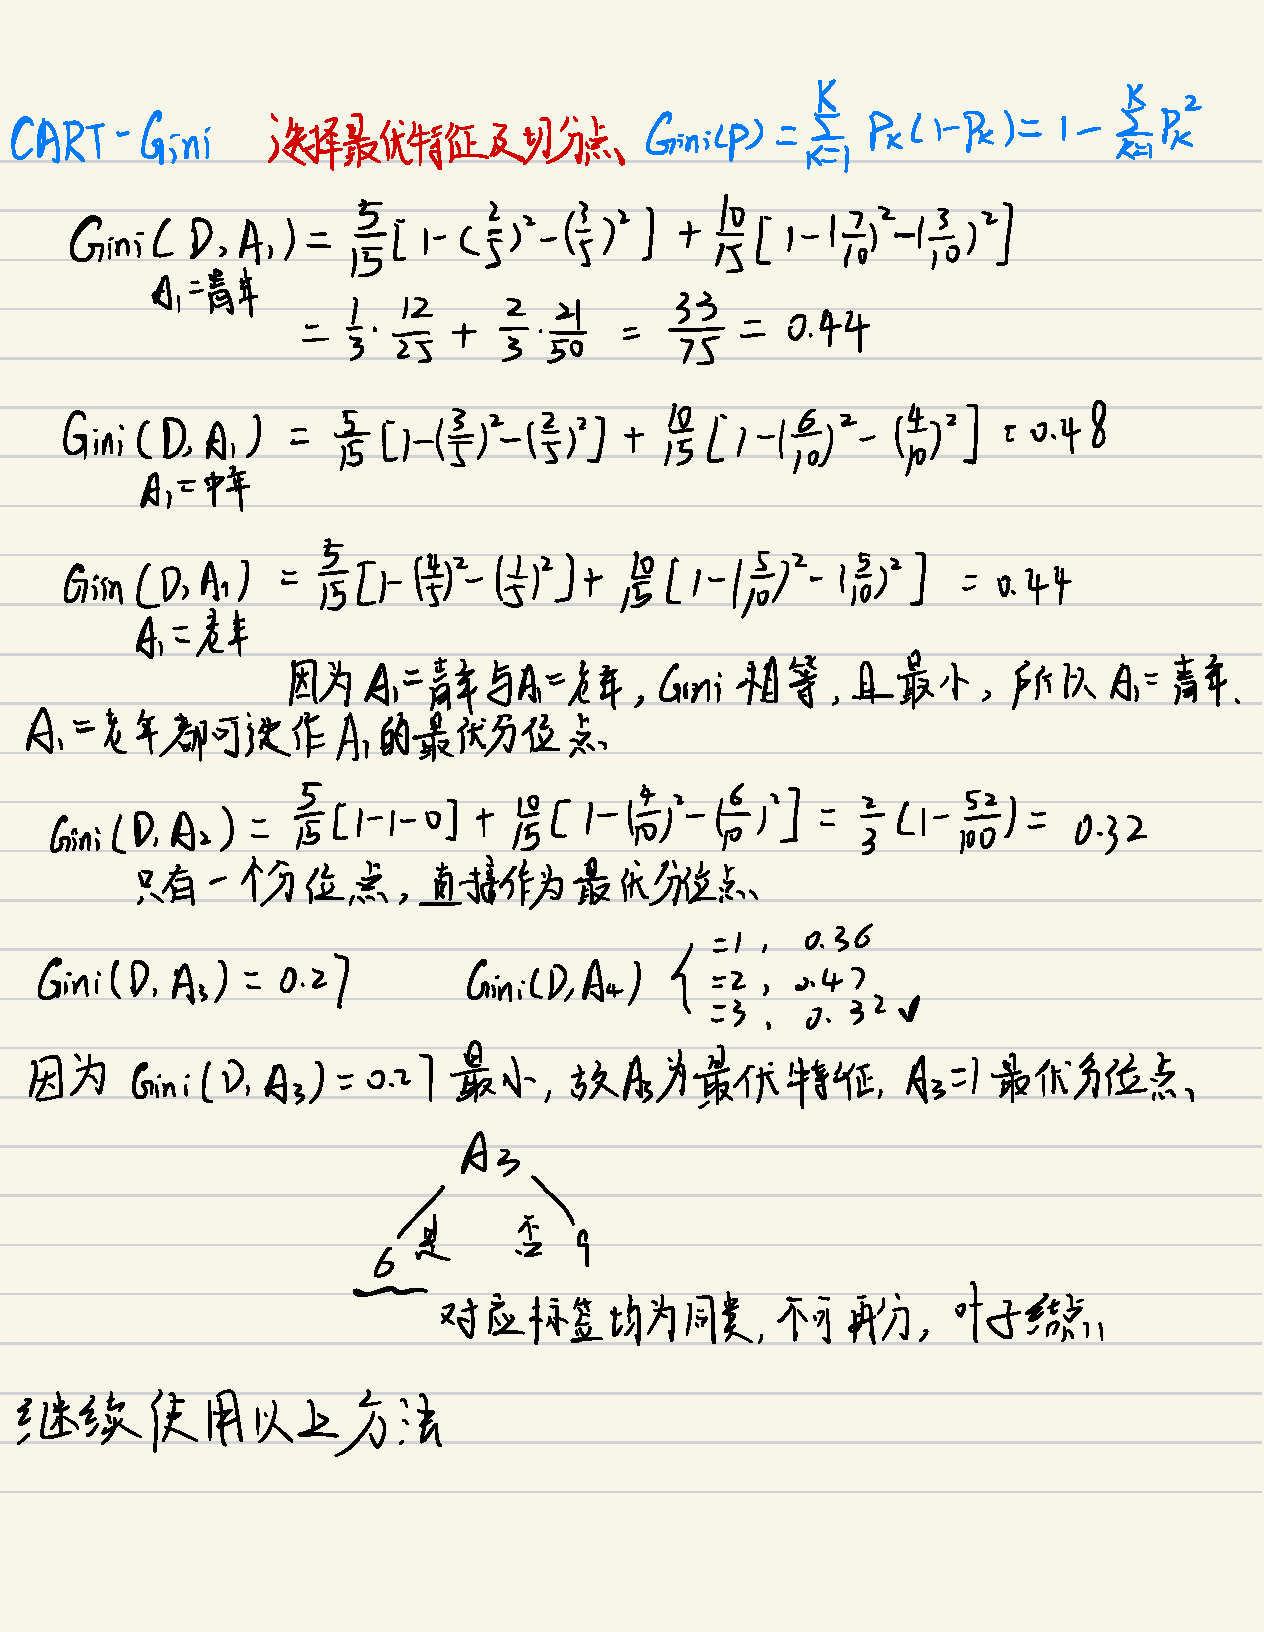 CART-Gini 选择最优特征及切分点、 Gini(p) = \sum_{k=1}^{K} P_k(1-P_k) = 1 - \sum_{k=1}^{K} P_k^2
Gini(D, A_1) = \frac{5}{15}[1-(\frac{2}{5})^2-(\frac{3}{5})^2] + \frac{10}{15}[1-(\frac{7}{10})^2-(\frac{3}{10})^2]
A_1=青年
= \frac{1}{3}·\frac{12}{25} + \frac{2}{3}·\frac{21}{50} = \frac{33}{75} = 0.44
Gini(D, A_1) = \frac{5}{15}[1-(\frac{3}{5})^2-(\frac{2}{5})^2] + \frac{10}{15}[1-(\frac{6}{10})^2-(\frac{4}{10})^2] = 0.48
A_1=中年
Giin(D, A_1) = \frac{5}{15}[1-(\frac{4}{5})^2-(\frac{1}{5})^2] + \frac{10}{15}[1-(\frac{5}{10})^2-(\frac{5}{10})^2] = 0.44
A_1=老年
因为 A_1=青年与A_1=老年, Gini 相等, 且最小, 所以 A_1=青年、
A_1=老年都可选作 A_1 的最优分位点、
Gini(D, A_2) = \frac{5}{15}[1-1-0] + \frac{10}{15}[1-(\frac{4}{10})^2-(\frac{6}{10})^2] = \frac{2}{3}(1-\frac{52}{100}) = 0.32
只有一个分位点, 直接作为最优分位点、
Gini(D, A_3) = 0.27 Gini(D, A_4) { =1, 0.36
=2, 0.47
=3, 0.32 ✓
因为 Gini(D, A_3)=0.27 最小, 故A_3为最优特征, A_3=1 最优分位点、
A_3
是 否
6 9
对应标签均为同类, 不可再分, 叶子结点,,
继续使用以上方法